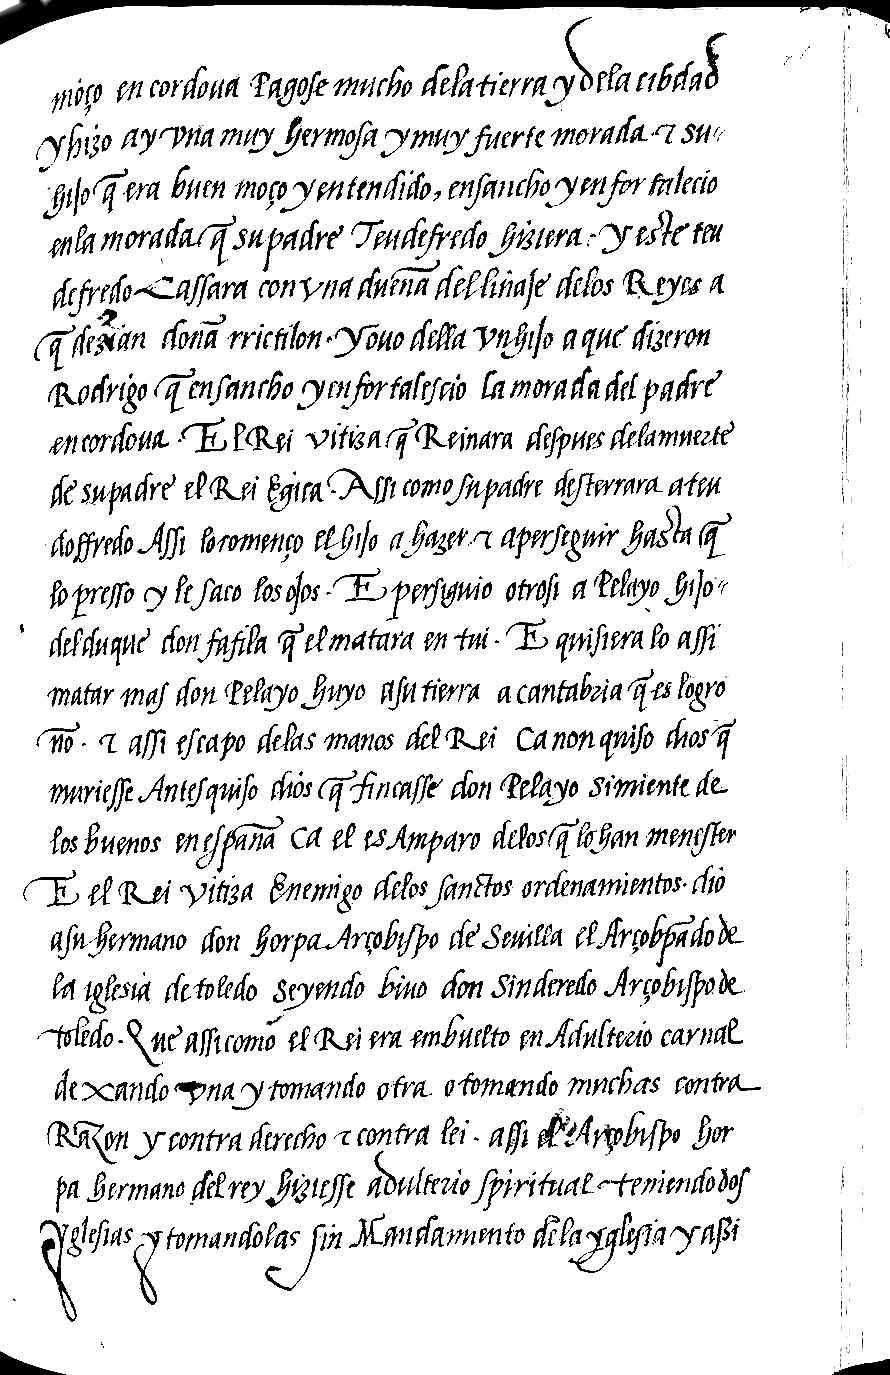 moço en cordoua Pagose mucho dela tierra y dela cibdad
y hizo ay vna muy hermosa y muy fuerte morada. τ su
hijo q̃ era buen moço y entendido, ensancho y enfortalecio
en la morada q̃ su padre Teudefredo hiziera. Y este teu
defredo Cassara con vna dueña del linaje delos Reyes a
q̃ dezian doña rrictilon. Y ouo della vn hijo a que dizeron
Rodrigo q̃ ensancho y enfortalescio la morada del padre
en cordoua. El Rei vitiza q̃ Reinara despues dela muerte
de su padre el Rei Egica. Assi como su padre desterrara a teu
doffredo Assi lo començo el hijo a hazer. τ a perseguir hasta q̃
lo presso y le saco los ojos. E persiguio otrosi a Pelayo hijo
del duque don fafila q̃ el matara en tui. E quisiera lo assi
matar mas don Pelayo huyo a su tierra a cantabria q̃ es logro
ño. τ assi escapo delas manos del Rei Ca non quiso dios q̃
muriesse Antes quiso dios q̃ fincasse don Pelayo simiente de
los buenos en españa Ca el es Amparo delos q̃ lo han menester
E el Rei vitiza Enemigo delos sanctos ordenamientos. dio
a su hermano don horpa Arçobispo de Seuilla el Arçobp̃ado de
la iglesia de toledo seyendo biuo don Sinderedo Arçobispo de
toledo. Que assi como el Rei era embuelto en Adulterio carnal
dexando vna y tomando otra o tomando muchas contra
Razon y contra derecho τ contra lei. assi el Arçobispo hor
pa hermano del rey hiziesse adulterio spiritual teniendo dos
yglesias y tomandolas sin Mandamiento dela yglesia y assi